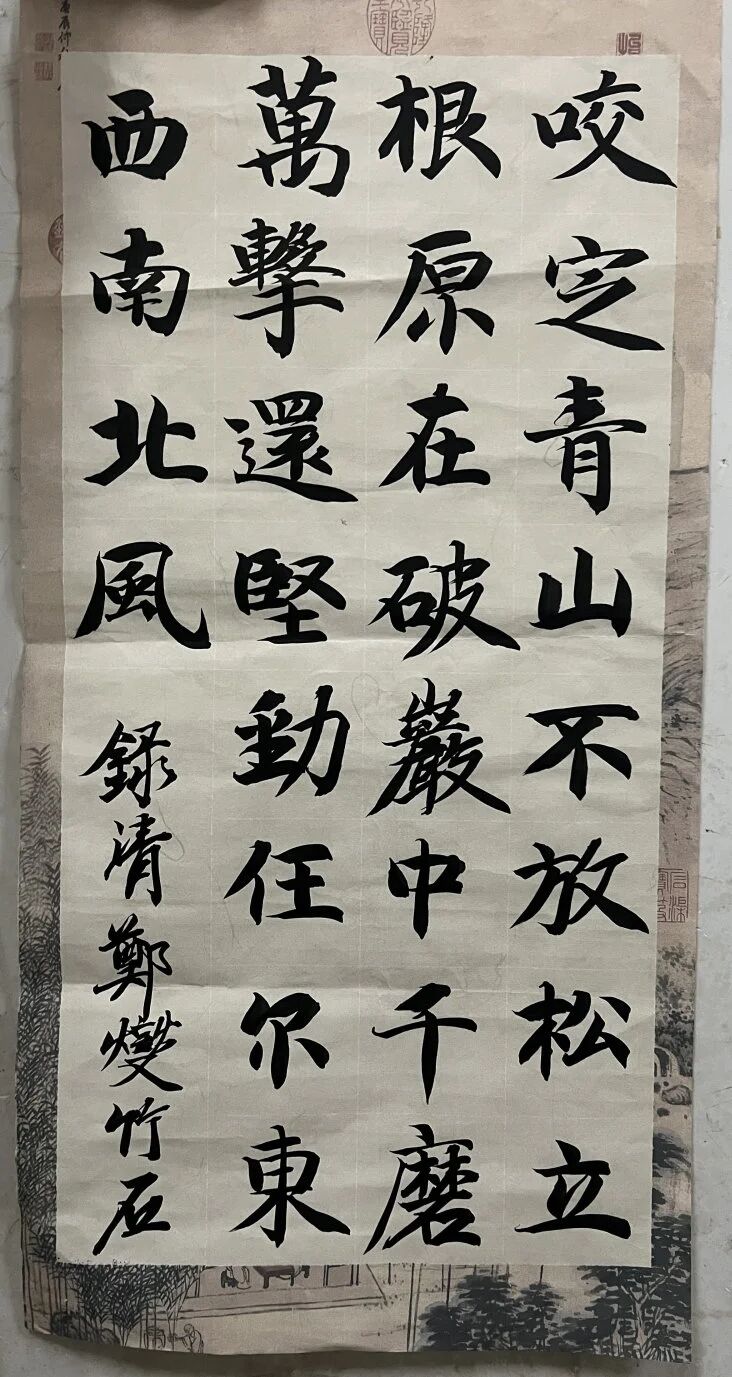 咬定青山不放松立
根原在破巖中千磨
萬擊還堅勁任尔東
西南北風
錄清鄭燮竹石